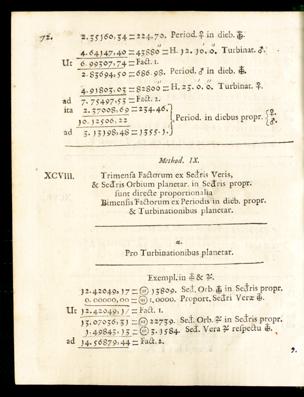 72. 2.35160,34 = 224.70. Period. ♀ in dieb. ♁.
4.64147,40 = 43880 = H. 12. 10. 0. Turbinat. ♂.
Ut 6.99307,74 = Fact. 1.
2.83694,50 = 686.98. Period. ♂ in dieb. ♁.
4.91803,03 = 82800 = H. 23. 0. 0. Turbinat. ♀.
ad 7.75497,53 = Fact. 2.
ita 2.37008,69 = 234.46.
10.12506,22 Period. in diebus propr. ♀. ♂.
ad 3.13198,48 = 1355.1.
Method. IX.
XCVIII. Trimensa Factorum ex Sectris Veris,
& Sectris Orbium planetar. in Sectris propr.
sunt directe proportionalia
Bimensis Factorum ex Periodis in dieb. propr.
& Turbinationibus planetar.
a.
Pro Turbinationibus planetar.
Exempl. in ♁ & ♃.
12.42049,17 = 13809. Sect. Orb. ♁ in Sectris propr.
0.00000,00 = 1,0000. Proport. Sectri Veræ ♁.
Ut 12.42049,17 = Fact. 1.
13.07036,31 = 22739. Sect. Orb. ♃ in Sectris propr.
1.49843,13 = 3.1584. Sect. Vera ♃ respectu ♁.
ad 14.56879,44 = Fact. 2.